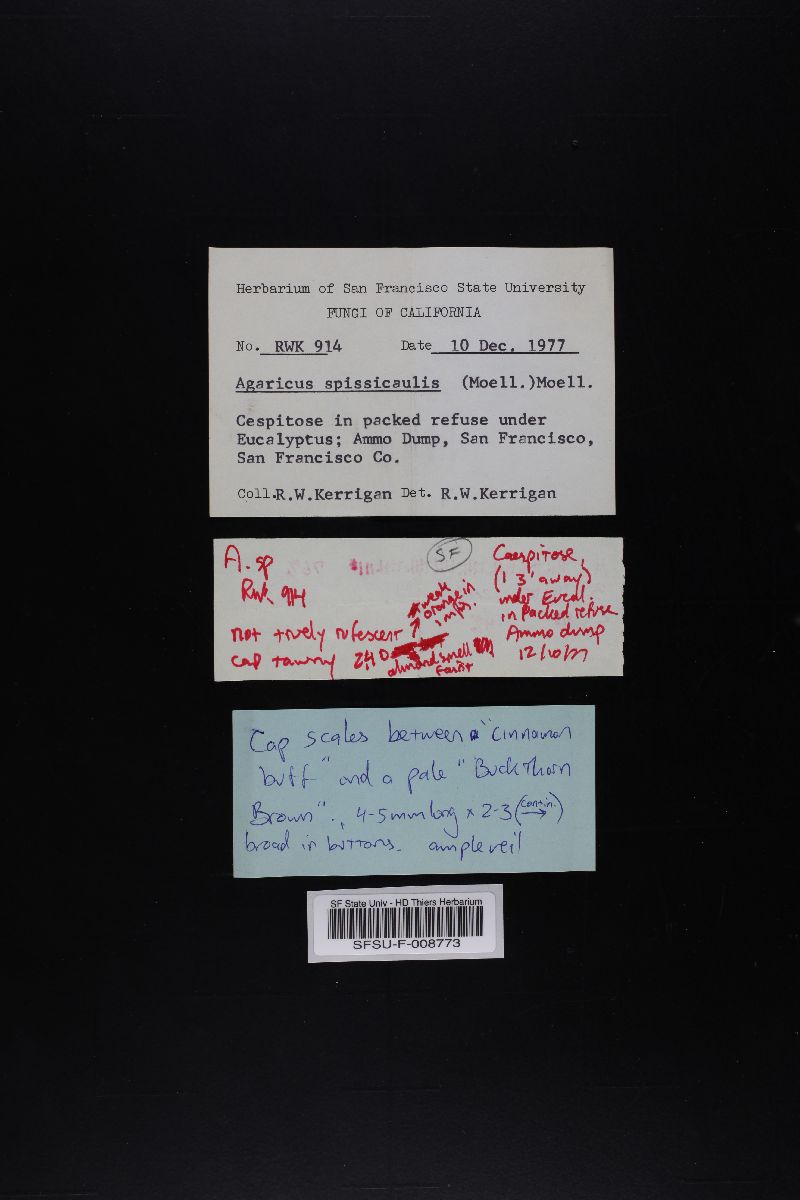 Herbarium of San Francisco State University
FUNGI OF CALIFORNIA
No. RWK 914 Date 10 Dec. 1977
Agaricus spissicaulis (Moell.)Moell.
Cespitose in packed refuse under
Eucalyptus; Ammo Dump, San Francisco,
San Francisco Co.
Coll.R.W.Kerrigan Det. R.W.Kerrigan
A. sp
RWK 914
SF
Caespitose,
(1 3' away)
under Eucal.
in packed refuse
Ammo dump
12/10/77
weak
orange in
not truly rufescent
cap tawny
almond smell
faint
Cap scales between "cinnamon
buff" and a pale "Buckthorn
Brown"., 4-5mm long x 2-3 (contin. →)
broad in buttons. ample veil
SF State Univ - HD Thiers Herbarium
SFSU-F-008773